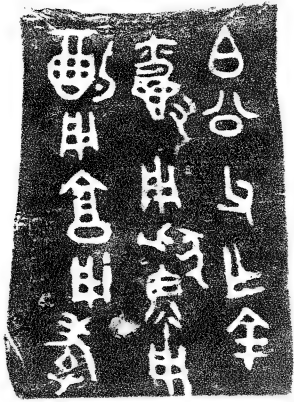 白公父乍金
爵用獻用
酌用享用孝